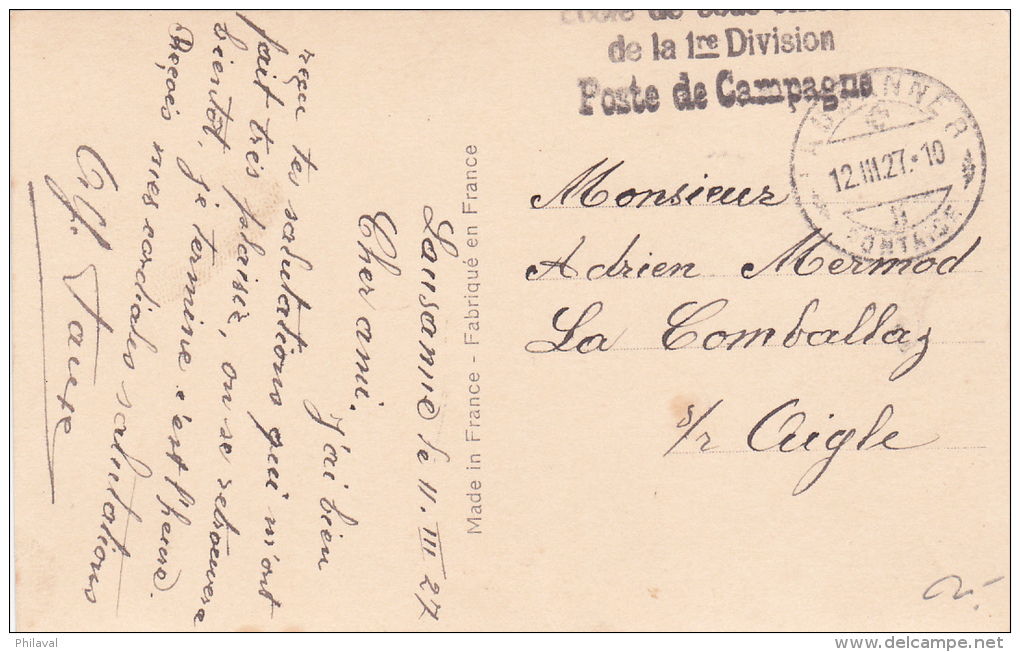 de la 1re Division
Poste de Campagne
12.III.27.-10
Monsieur
Adrien Mermod
La Comballaz
s/r Aigle
Made in France - Fabriqué en France
Lausanne le 11. III 27
Cher ami.
J'ai bien
reçu tes salutations qui m'ont
fait très plaisir, on se retrouvera
bientôt, je termine c'est l'heure.
Reçois mes cordiales salutations
Philaval
www.delcampe.net